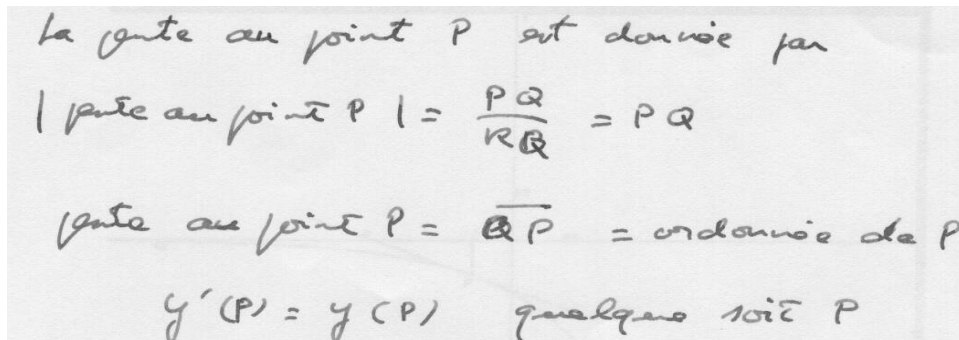 La pente au point P est donnée par
| pente au point P | = PQ / RQ = PQ
pente au point P = \overline{QP} = ordonnée de P
y'(P) = y(P) quelque soit P